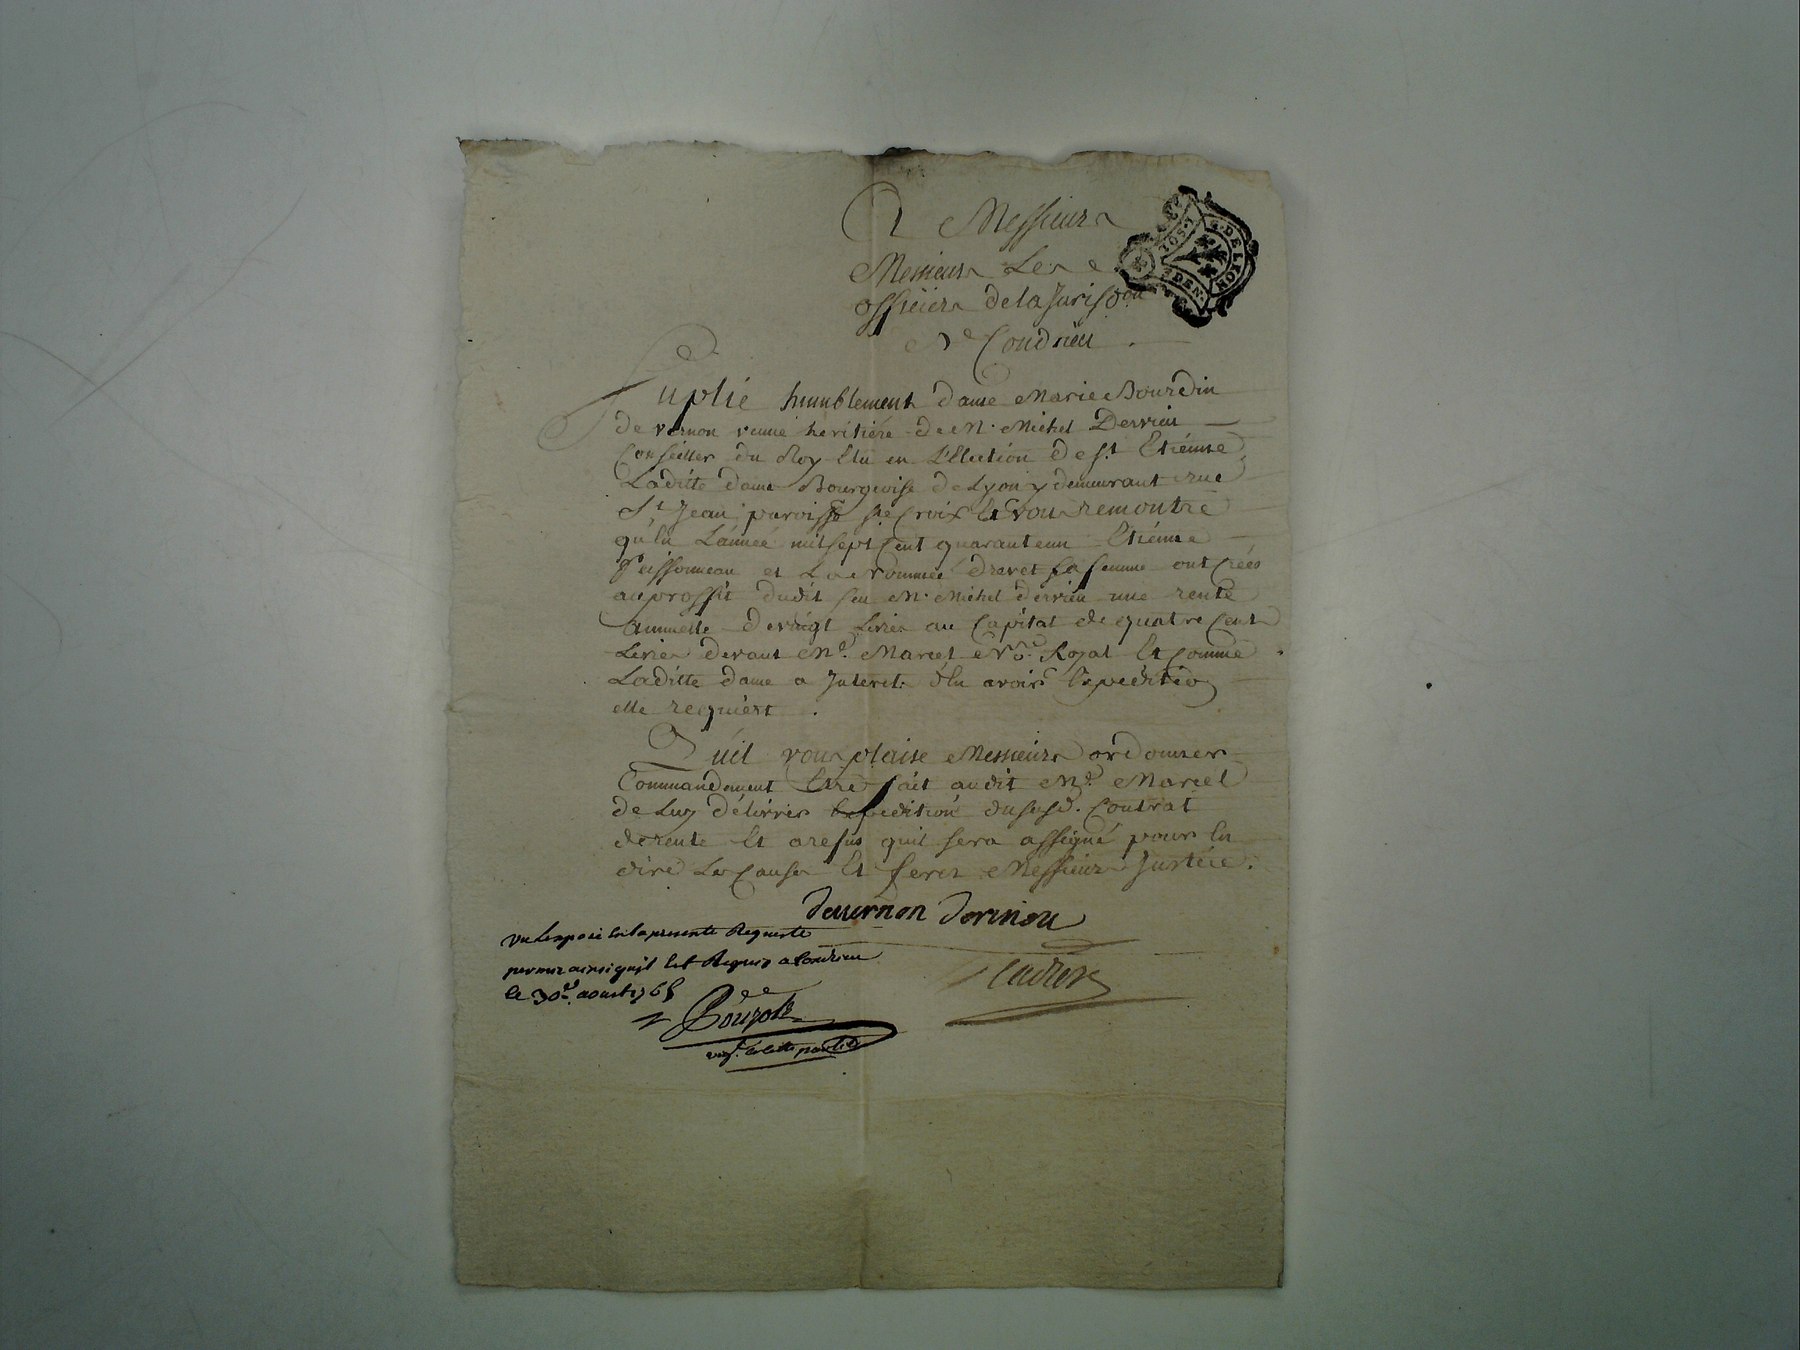 A Messieurs
Messieurs Les
officiers de la Jurisdon
de Condrieu
Suplie humblement dame Marie Bourdin
de vernon veuve heritiere de Mr. Michel Derrieu
Conseiller du Roy Elu en L'Election de St Etienne
Laditte dame Bourgeoise de Lyon y demeurant rue
St Jean paroisse ste Croix Et vous remontre
qu'en L'année mil sept Cent quarante un Etienne
Peissonneau et drevet sa femme ont Créés
au proffit dudit feu Mr. Michel derrieu une rente
annuelle de vingt Livres au Capital de quatre Cents
Livres devant Me. Marcel Nore. Royal Et Comme
Laditte dame a Interets d'En avoir Expedition
elle requiert .
Quil vous plaise Messieurs ordonner
Commandement Etre fait audit Me. Marcel
de Luy délivrer Expedition dususd. Contrat
de rente Et a refus quil sera assigné pour En
dire Les Causes Et ferez Messieurs Justice.
devernon
vu Lexposé En la presente Requeste
permis ainsi quil Est Requis a Condrieu
le 30e. aoust 1765
DE LION
DEN.